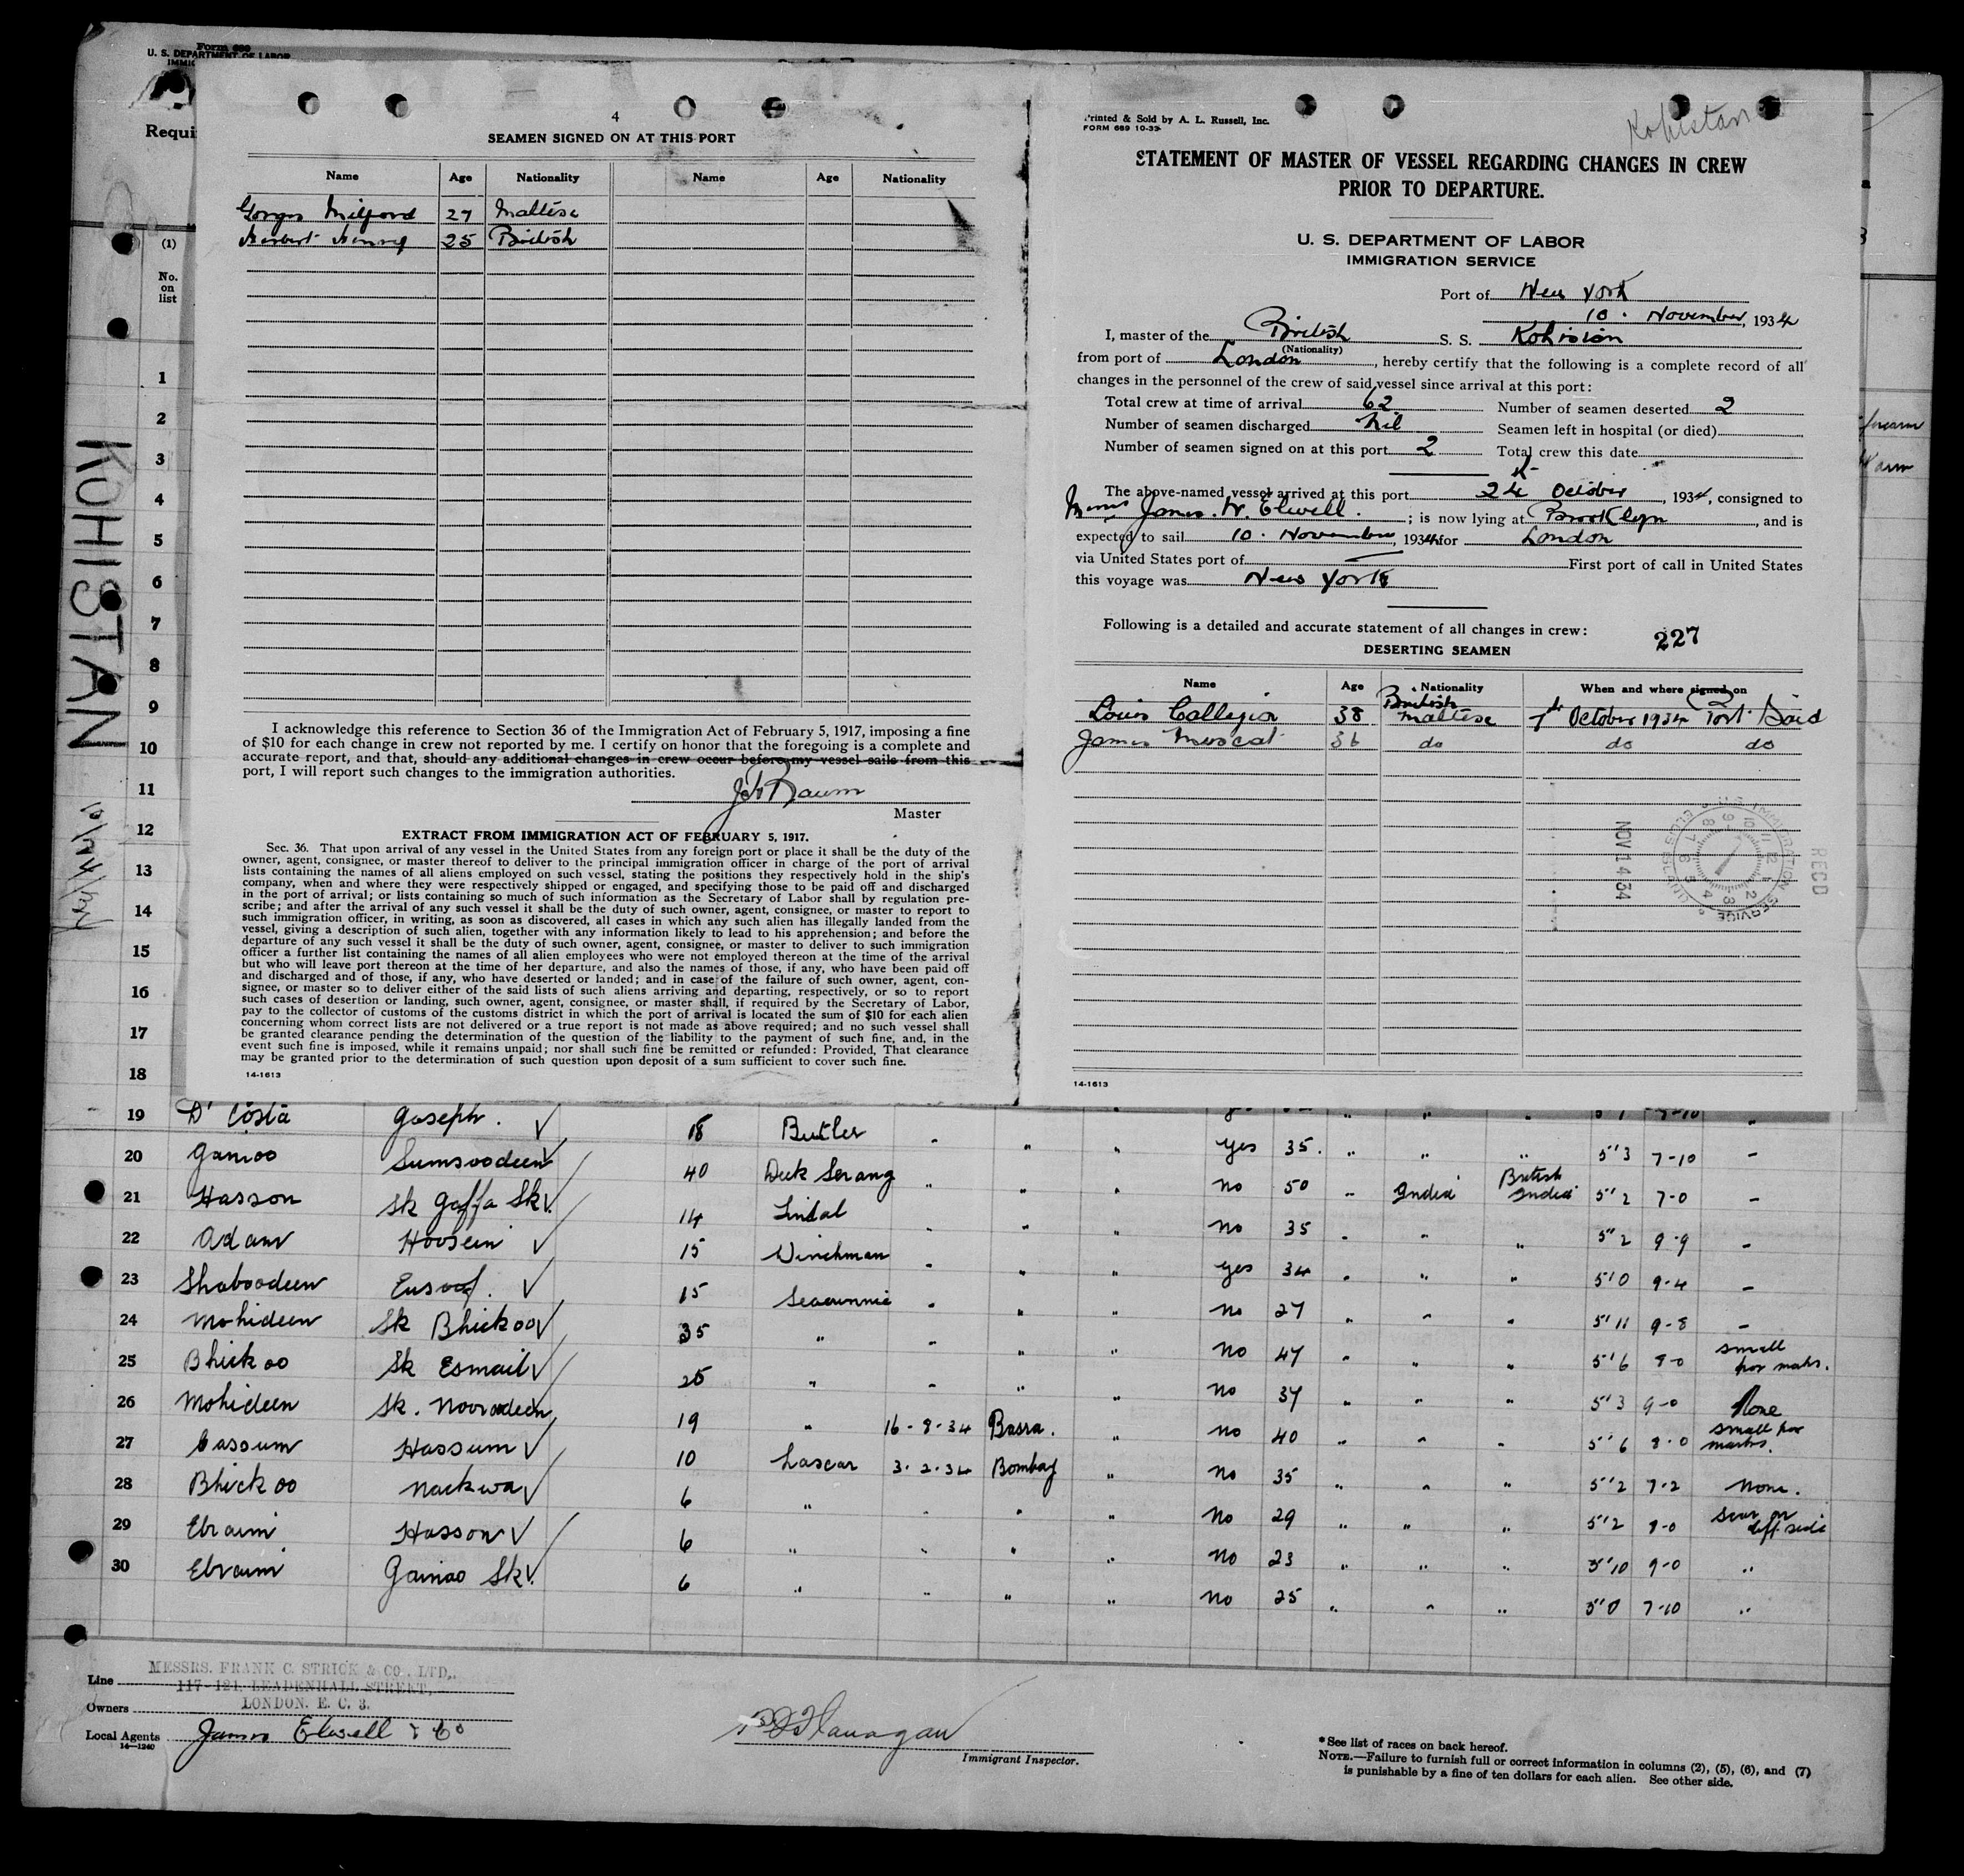 Form 689
U. S. DEPARTMENT OF LABOR
Requi
(1)
No.
on
list
KOHISTAN
4
SEAMEN SIGNED ON AT THIS PORT
Name Age Nationality Name Age Nationality
Milford 27 Maltese
Herbert 25 British
I acknowledge this reference to Section 36 of the Immigration Act of February 5, 1917, imposing a fine
of $10 for each change in crew not reported by me. I certify on honor that the foregoing is a complete and
accurate report, and that, should any additional changes in crew occur before my vessel sails from this
port, I will report such changes to the immigration authorities.
Master
EXTRACT FROM IMMIGRATION ACT OF FEBRUARY 5, 1917.
Sec. 36. That upon arrival of any vessel in the United States from any foreign port or place it shall be the duty of the
owner, agent, consignee, or master thereof to deliver to the principal immigration officer in charge of the port of arrival
lists containing the names of all aliens employed on such vessel, stating the positions they respectively hold in the ship's
company, when and where they were respectively shipped or engaged, and specifying those to be paid off and discharged
in the port of arrival; or lists containing so much of such information as the Secretary of Labor shall by regulation pre-
scribe; and after the arrival of any such vessel it shall be the duty of such owner, agent, consignee, or master to report to
such immigration officer, in writing, as soon as discovered, all cases in which any such alien has illegally landed from the
vessel, giving a description of such alien, together with any information likely to lead to his apprehension; and before the
departure of any such vessel it shall be the duty of such owner, agent, consignee, or master to deliver to such immigration
officer a further list containing the names of all alien employees who were not employed thereon at the time of the arrival
but who will leave port thereon at the time of her departure, and also the names of those, if any, who have been paid off
and discharged and of those, if any, who have deserted or landed; and in case of the failure of such owner, agent, con-
signee, or master so to deliver either of the said lists of such aliens arriving and departing, respectively, or so to report
such cases of desertion or landing, such owner, agent, consignee, or master shall, if required by the Secretary of Labor,
pay to the collector of customs of the customs district in which the port of arrival is located the sum of $10 for each alien
concerning whom correct lists are not delivered or a true report is not made as above required; and no such vessel shall
be granted clearance pending the determination of the question of the liability to the payment of such fine, and, in the
event such fine is imposed, while it remains unpaid; nor shall such fine be remitted or refunded: Provided, That clearance
may be granted prior to the determination of such question upon deposit of a sum sufficient to cover such fine.
14-1613
Kohistan
Printed & Sold by A. L. Russell, Inc.
FORM 689 10-32
STATEMENT OF MASTER OF VESSEL REGARDING CHANGES IN CREW
PRIOR TO DEPARTURE.
U. S. DEPARTMENT OF LABOR
IMMIGRATION SERVICE
Port of New York
10. November, 1934
I, master of the British S. S. Kohistan
(Nationality)
from port of London, hereby certify that the following is a complete record of all
changes in the personnel of the crew of said vessel since arrival at this port:
Total crew at time of arrival 62 Number of seamen deserted 2
Number of seamen discharged Nil Seamen left in hospital (or died)
Number of seamen signed on at this port 2 Total crew this date
The above-named vessel arrived at this port 24 October, 1934, consigned to
Messrs James. W. Elwell. ; is now lying at Brooklyn, and is
expected to sail 10. November, 1934 for London
via United States port of First port of call in United States
this voyage was New York
Following is a detailed and accurate statement of all changes in crew:
227
DESERTING SEAMEN
Name Age Nationality When and where signed on
Louis Callejia 38 British Maltese 7th October 1934 Port Said
James Muscat 36 do do do
RECD
U.S. IMMIGRATION SERVICE
ELLIS ISLAND
NOV 14 34
14-1613
1
2
3
4
5
6
7
8
9
10
11
12
13
14
15
16
17
18
19 D'Costa Joseph. 18 Butler " " " yes 35. " " " 5'3 7-10 -
20 Ganoo Sumsoodeen 40 Deck Serang " " " no 50 " India British India 5'2 7-0 -
21 Hasson Sk Gaffa Sk. 14 Tindal " " " no 35 " " " 5'2 9-9 -
22 Adam Hoosein 15 Winchman " " " yes 34 " " " 5'0 9-4 -
23 Shaboodeen Eusoof. 15 Seacunnie " " " no 27 " " " 5'11 9-8 -
24 Mohideen Sk Bhickoo 35 " " " " no 47 " " " 5'6 9-0 small pox marks.
25 Bhickoo Sk Esmail 25 " " " " no 37 " " " 5'3 9-0 None
26 Mohideen Sk. Nooroodeen 19 " 16-8-34 Basra. " no 40 " " " 5'6 8-0 small pox marks.
27 Cassum Hassum 10 Lascar 3-2-34 Bombay " no 35 " " " 5'2 7-2 None.
28 Bhickoo Nackwa 6 " " " " no 29 " " " 5'2 8-0 Scar on left side
29 Ebraim Hasson 6 " " " " no 23 " " " 5'10 9-0 "
30 Ebraim Gainoo Sk. 6 " " " " no 25 " " " 5'0 7-10 "
Line MESSRS. FRANK C. STRICK & CO., LTD.,
117-121, LEADENHALL STREET,
Owners LONDON, E. C. 3.
Local Agents James Elwell & Co
14-1240
Flanagan
Immigrant Inspector.
*See list of races on back hereof.
NOTE.—Failure to furnish full or correct information in columns (2), (5), (6), and (7)
is punishable by a fine of ten dollars for each alien. See other side.